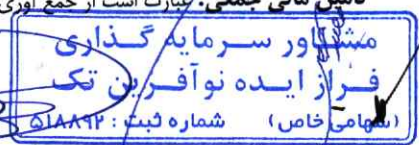 تامین مالی جمعی: عبارت است از جمع آوری
مشاور سرمایه گذاری
فراز ایده نوآفرین تک
(سهامی خاص) شماره ثبت: ۵۱۸۸۹۲